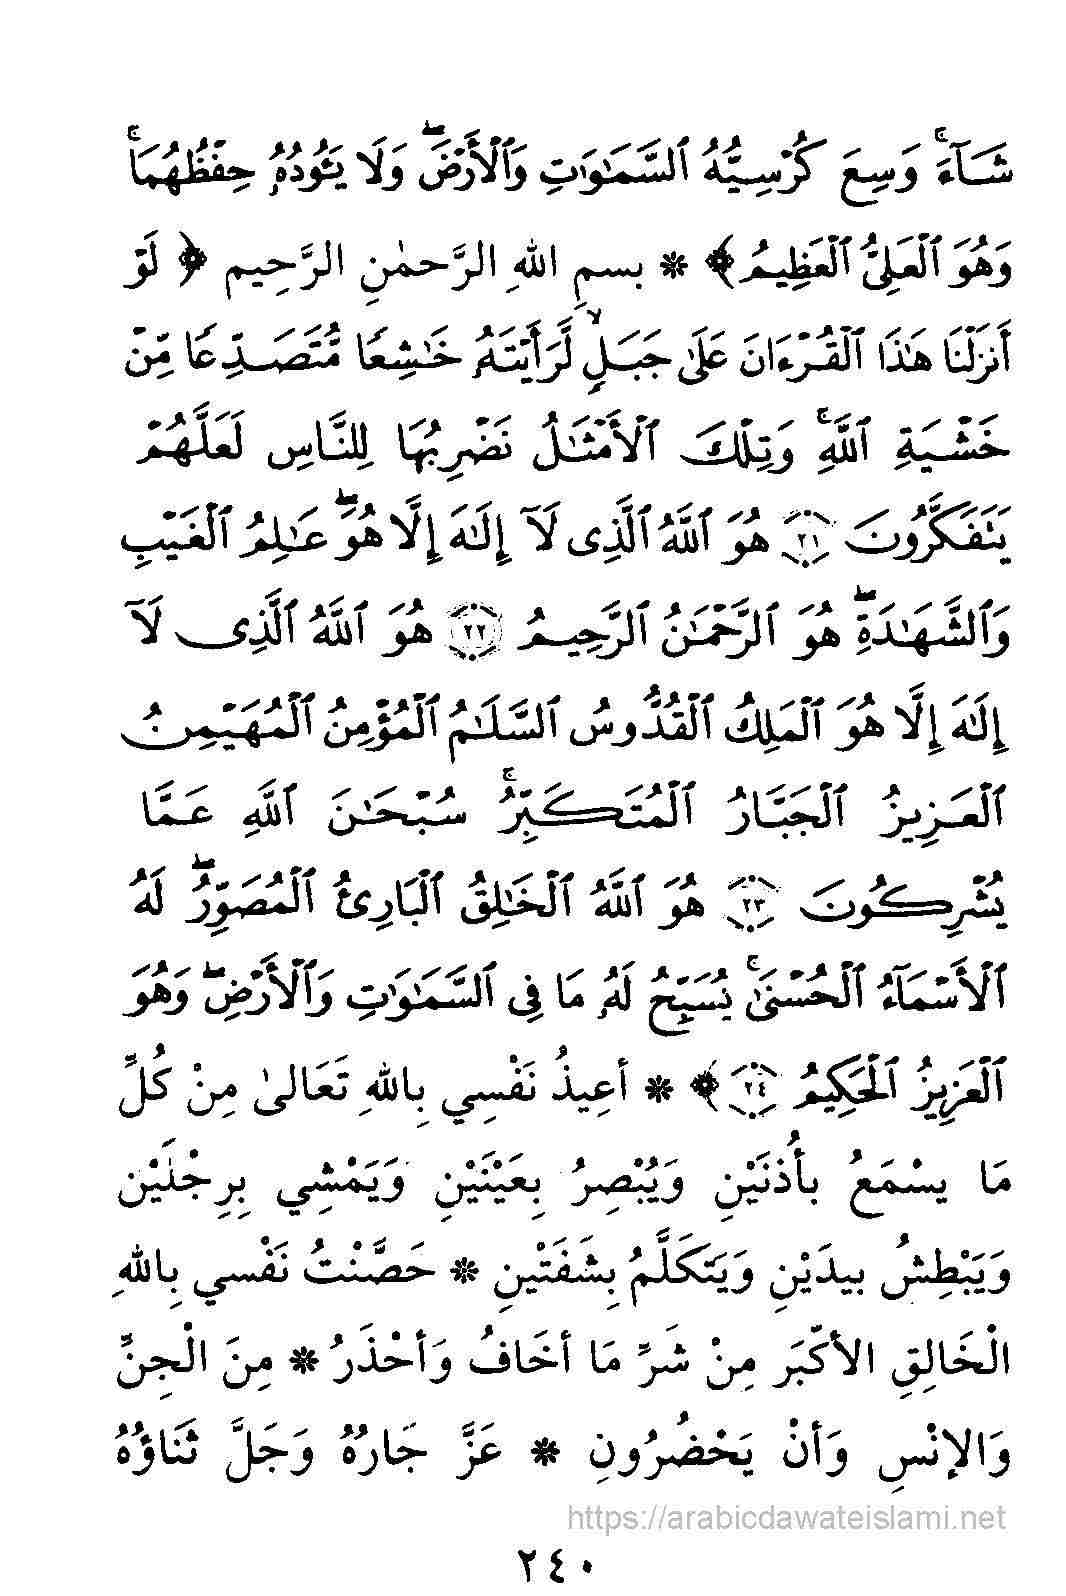 شَآءَۚ وَسِعَ كُرْسِيُّهُ ٱلسَّمَٰوَٰتِ وَٱلْأَرْضَۖ وَلَا يَـُٔودُهُۥ حِفْظُهُمَاۚ
وَهُوَ ٱلْعَلِىُّ ٱلْعَظِيمُ﴾ * بسمِ اللهِ الرَّحمٰنِ الرَّحِيم ﴿ لَوْ
أَنزَلْنَا هَٰذَا ٱلْقُرْءَانَ عَلَىٰ جَبَلٍۢ لَّرَأَيْتَهُۥ خَٰشِعًا مُّتَصَدِّعًا مِّنْ
خَشْيَةِ ٱللَّهِۚ وَتِلْكَ ٱلْأَمْثَٰلُ نَضْرِبُهَا لِلنَّاسِ لَعَلَّهُمْ
يَتَفَكَّرُونَ ٢١ هُوَ ٱللَّهُ ٱلَّذِى لَآ إِلَٰهَ إِلَّا هُوَۖ عَٰلِمُ ٱلْغَيْبِ
وَٱلشَّهَٰدَةِۖ هُوَ ٱلرَّحْمَٰنُ ٱلرَّحِيمُ ٢٢ هُوَ ٱللَّهُ ٱلَّذِى لَآ
إِلَٰهَ إِلَّا هُوَ ٱلْمَلِكُ ٱلْقُدُّوسُ ٱلسَّلَٰمُ ٱلْمُؤْمِنُ ٱلْمُهَيْمِنُ
ٱلْعَزِيزُ ٱلْجَبَّارُ ٱلْمُتَكَبِّرُۚ سُبْحَٰنَ ٱللَّهِ عَمَّا
يُشْرِكُونَ ٢٣ هُوَ ٱللَّهُ ٱلْخَٰلِقُ ٱلْبَارِئُ ٱلْمُصَوِّرُۖ لَهُ
ٱلْأَسْمَآءُ ٱلْحُسْنَىٰۚ يُسَبِّحُ لَهُۥ مَا فِى ٱلسَّمَٰوَٰتِ وَٱلْأَرْضِۖ وَهُوَ
ٱلْعَزِيزُ ٱلْحَكِيمُ ٢٤﴾ * أعِيذُ نَفْسِي بِاللهِ تَعَالىٰ مِنْ كُلِّ
مَا يسْمَعُ بأُذنَيْنِ وَيُبْصِرُ بِعَيْنَيْنِ وَيَمْشِي بِرِجْلَيْنِ
وَيَبْطِشُ بيدَيْنِ وَيَتَكَلَّمُ بِشَفَتْينِ * حَصَّنْتُ نَفْسي بِاللهِ
الْخَالِقِ الأكْبَر مِنْ شَرِّ مَا أخَافُ وَأحْذَرُ * مِنَ الْجِنِّ
وَالإنْسِ وَأنْ يَحْضُرُونِ * عَزَّ جَارُهُ وَجَلَّ ثَنَاؤُهُ
https://arabicdawateislami.net
٢٤٠